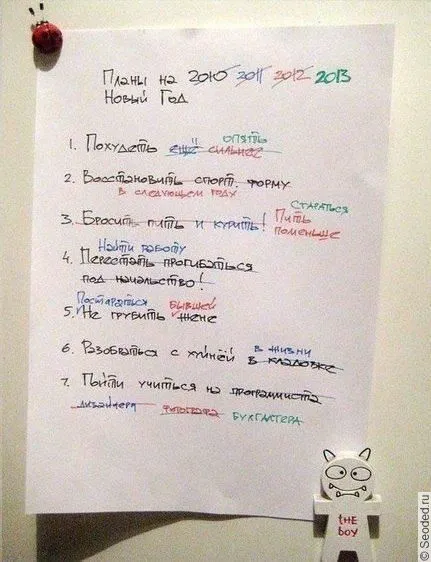 Планы на 2010 2011 2012 2013
Новый Год
опять
1. Похудеть ещё сильнее
2. Восстановить спорт. форму
в следующем году
стараться
3. Бросить пить и курить! Пить
поменьше
Найти работу
4. Перестать прогибаться
под начальство!
Постараться бывшей
5. Не грубить жене
6. Разобраться с хуйнёй в жизни
в кладовке
7. Пойти учиться на программиста
дизайнера фотографа бухгалтера
the
boy
© Seoded.ru